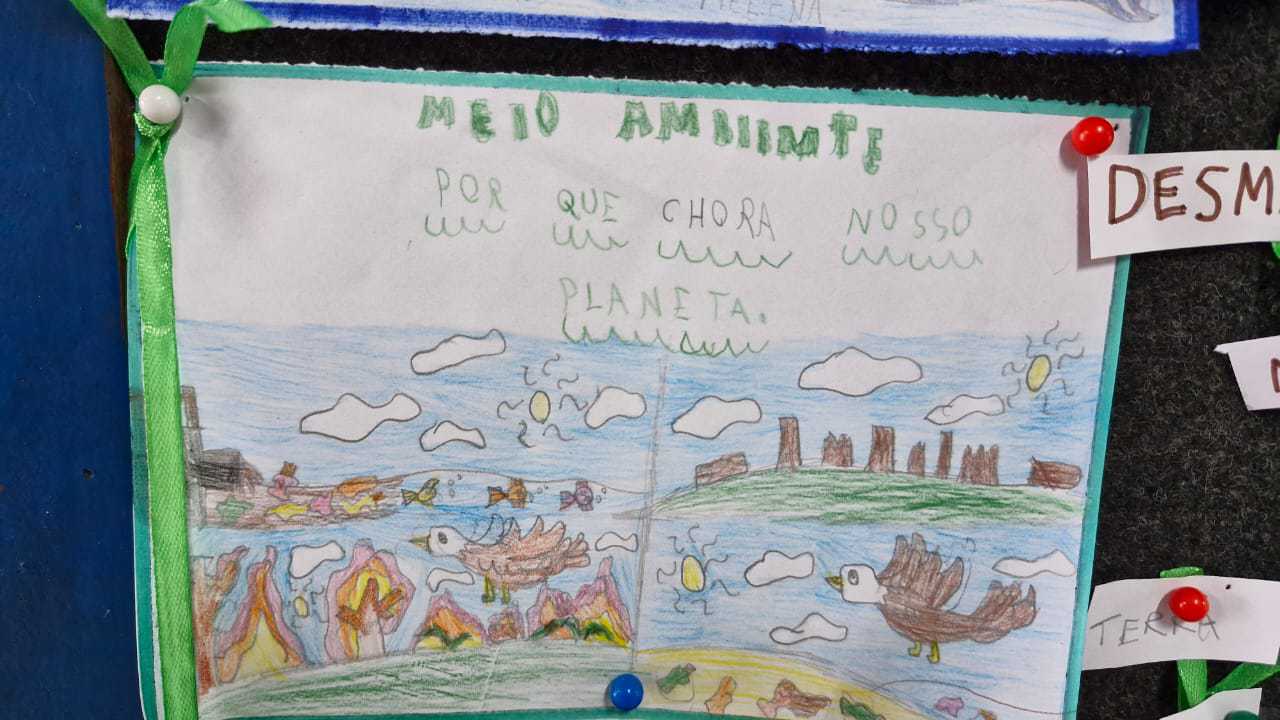 MEIO AMBIENTE
POR QUE CHORA NOSSO
PLANETA.
DESM
TERRA